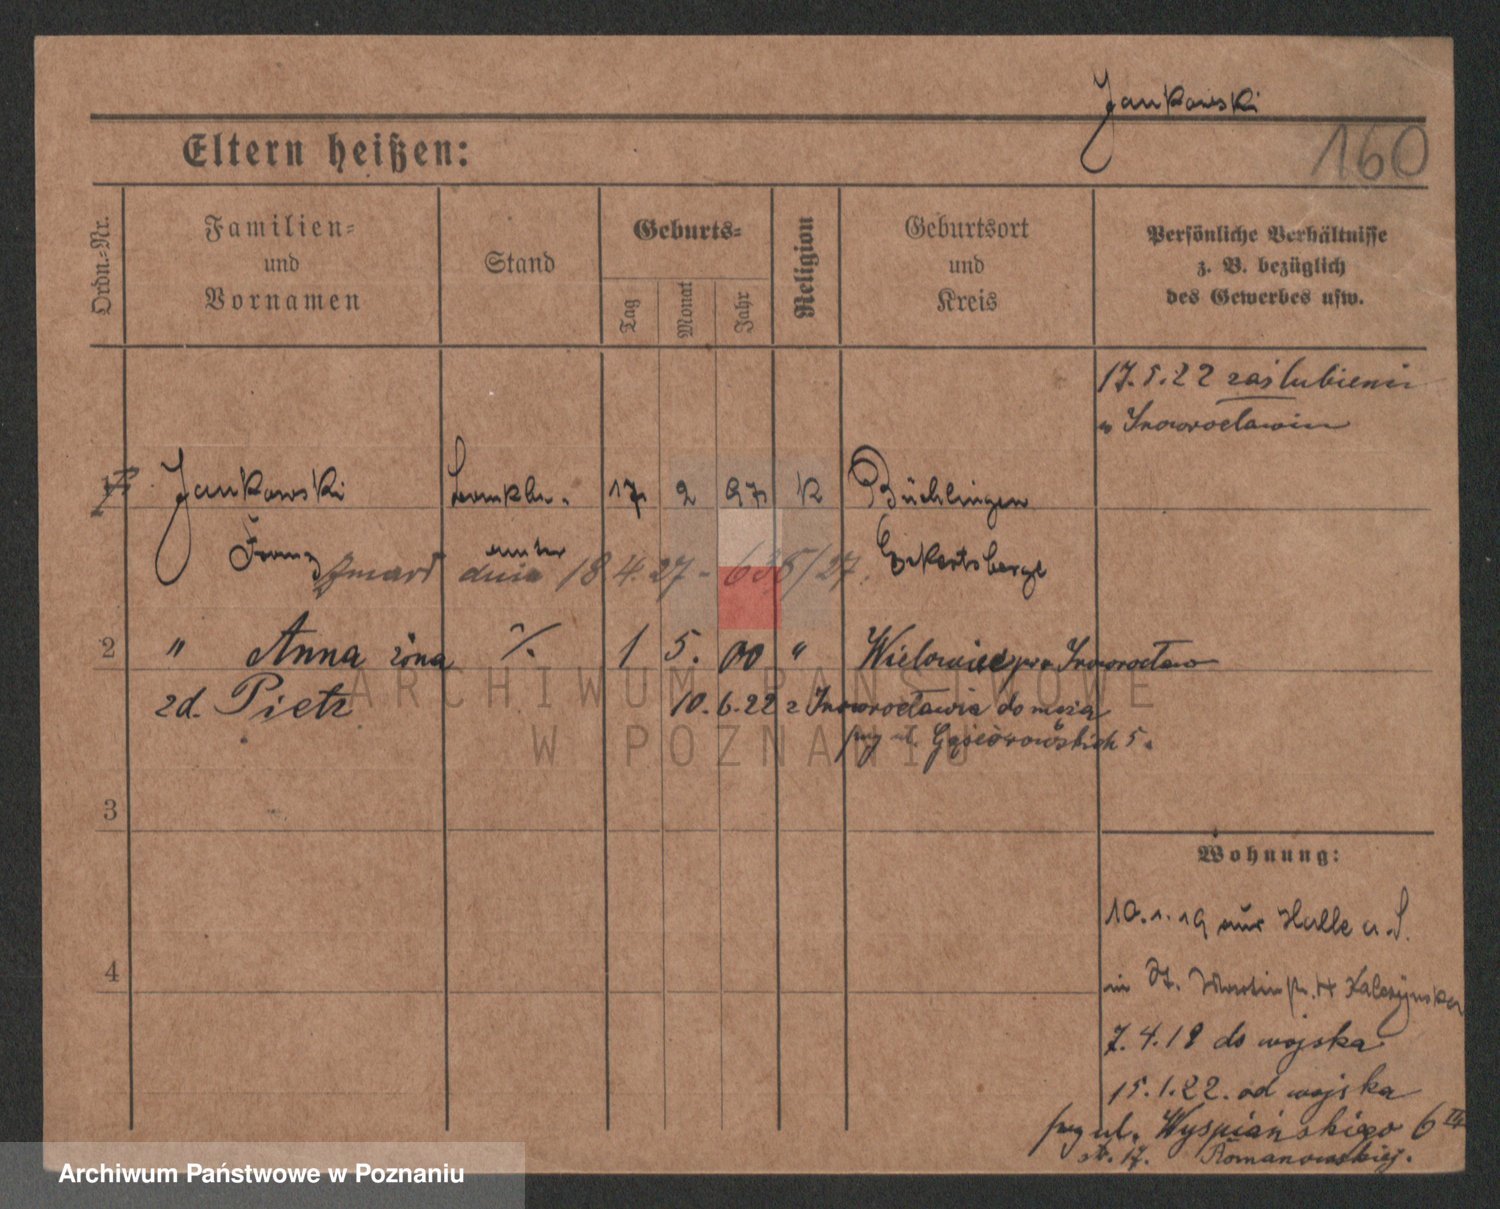 Jankowski
160
Eltern heißen:
Ordn.-Nr.
Familien-
und
Vornamen
Stand
Geburts-
Tag
Monat
Jahr
Religion
Geburtsort
und
Kreis
Persönliche Verhältnisse
z. B. bezüglich
des Gewerbes usw.
17.5.22 zaślubieni
w Inowrocławiu
1 Jankowski 17 2 97 k Büchlingen
Franz Eckartsberge
Zmarł dnia 18 4. 27 - 635/27.
2 " Anna żona ·/. 1 5. 00 " Wielowieś pow Inowrocław
zd. Pietz 10.6.22 z Inowrocławia do męża
przy ul. Gąsiorowskich 5.
ARCHIWUM PAŃSTWOWE
W POZNANIU
3
Wohnung:
10.1.19 aus Halle a. S.
in St. Martinstr.
4
7.4.19 do wojska
15.1.22. od wojska
przy ul. Wyspiańskiego 6
Romanowskiej.
Archiwum Państwowe w Poznaniu